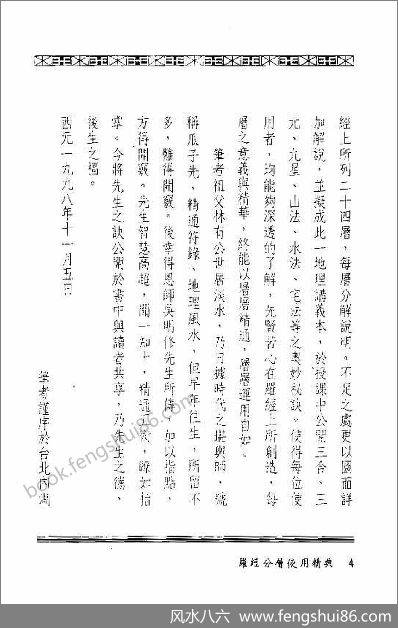 經上所列二十四層，每層分解說明。不足之處更以圖面詳
加解說，並擬成此一地理講義本，於授課中公開三合、三
元、九星、山法、水法、宅法等之奧妙秘訣，使得每位使
用者，均能夠深透的了解，先賢苦心在羅經上所創造，每
層之意義與精華，終能以層層精通，層層運用自如。
筆者祖父林有公世居淡水，乃日據時代之堪輿師，號
稱瓜子先，精通符籙、地理風水，但早年往生，所留不
多，難得開竅。後幸得恩師吳明修先生所傳，加以指點，
方得開竅。先生智慧高超，聞一知十，精通
掌。今將先生之訣公開於書中與讀者共享，乃先生之德，
後生之福。
西元一九九八年十一月五日
筆者謹序於台北內湖
羅經分層使用精典 4
book.fengshui86.com
风水八六 www.fengshui86.com